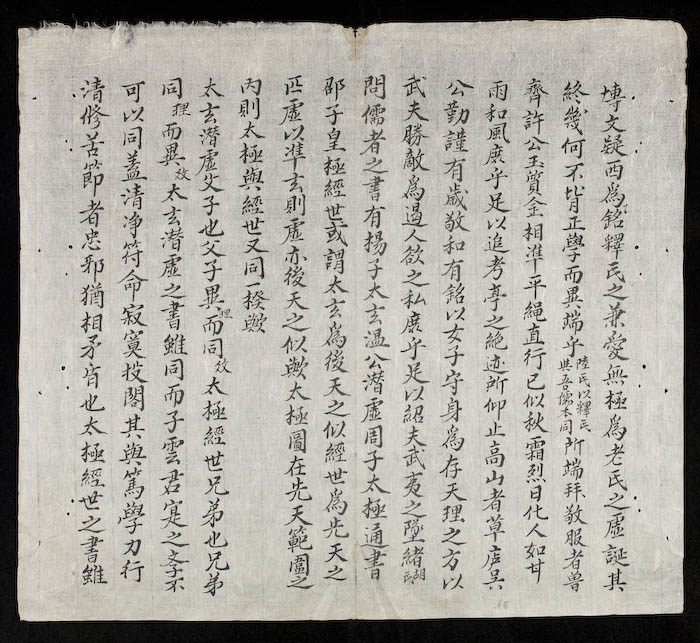 博文疑西爲銘釋氏之兼愛無極爲老氏之虛誕其
終幾何不皆正學而異端乎陸氏以釋氏與吾儒本同所端拜敬服者魯
齊許公玉質金相準平繩直行已似秋霜烈日化人如甘
雨和風庶乎足以追考亭之絶迹所仰止高山者草庐吳
公勤謹有歲敬和有銘以女子守身爲存天理之方以
武夫勝敵爲遏人欲之私庶乎足以紹夫武夷之墜緒
問儒者之書有揚子太玄溫公潛虛周子太極通書
邵子皇極經世或謂太玄爲後天之似經世爲先天之
匹虛以準玄則虛亦後天之似歟太極圖在先天範圍之
內則太極與經世又同一揆歟
太玄潛虛父子也父子異理而同效太極經世兄弟也兄弟
同理而異效太玄潛虛之書雖同而子雲君寔之文不
可以同蓋清净符命寂寞投閣其與篤學力行
清修苦節者忠邪猶相矛盾也太極經世之書雖